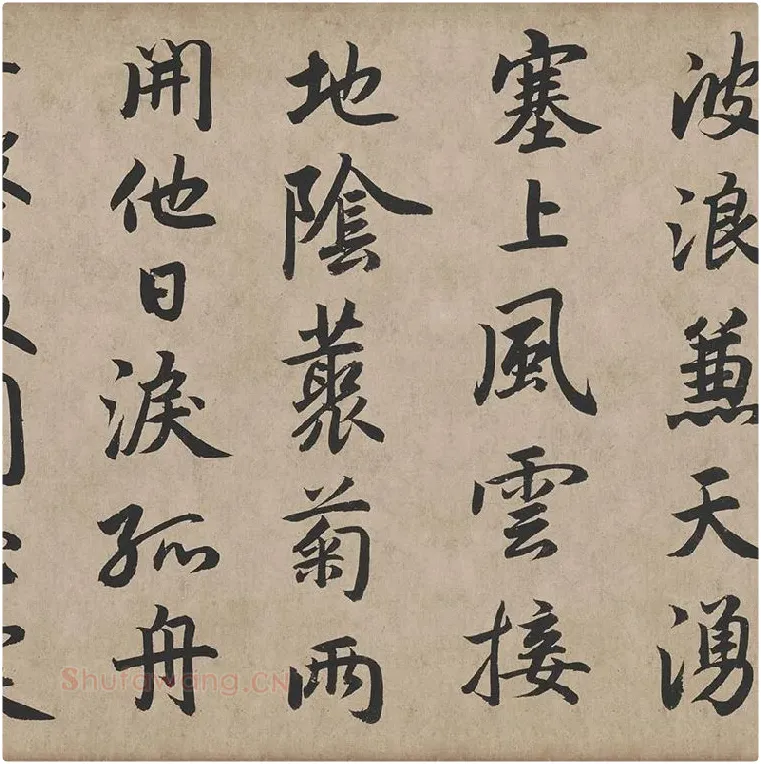 波浪兼天湧
塞上風雲接
地陰藂菊兩
開他日淚孤舟
Shufawang.CN